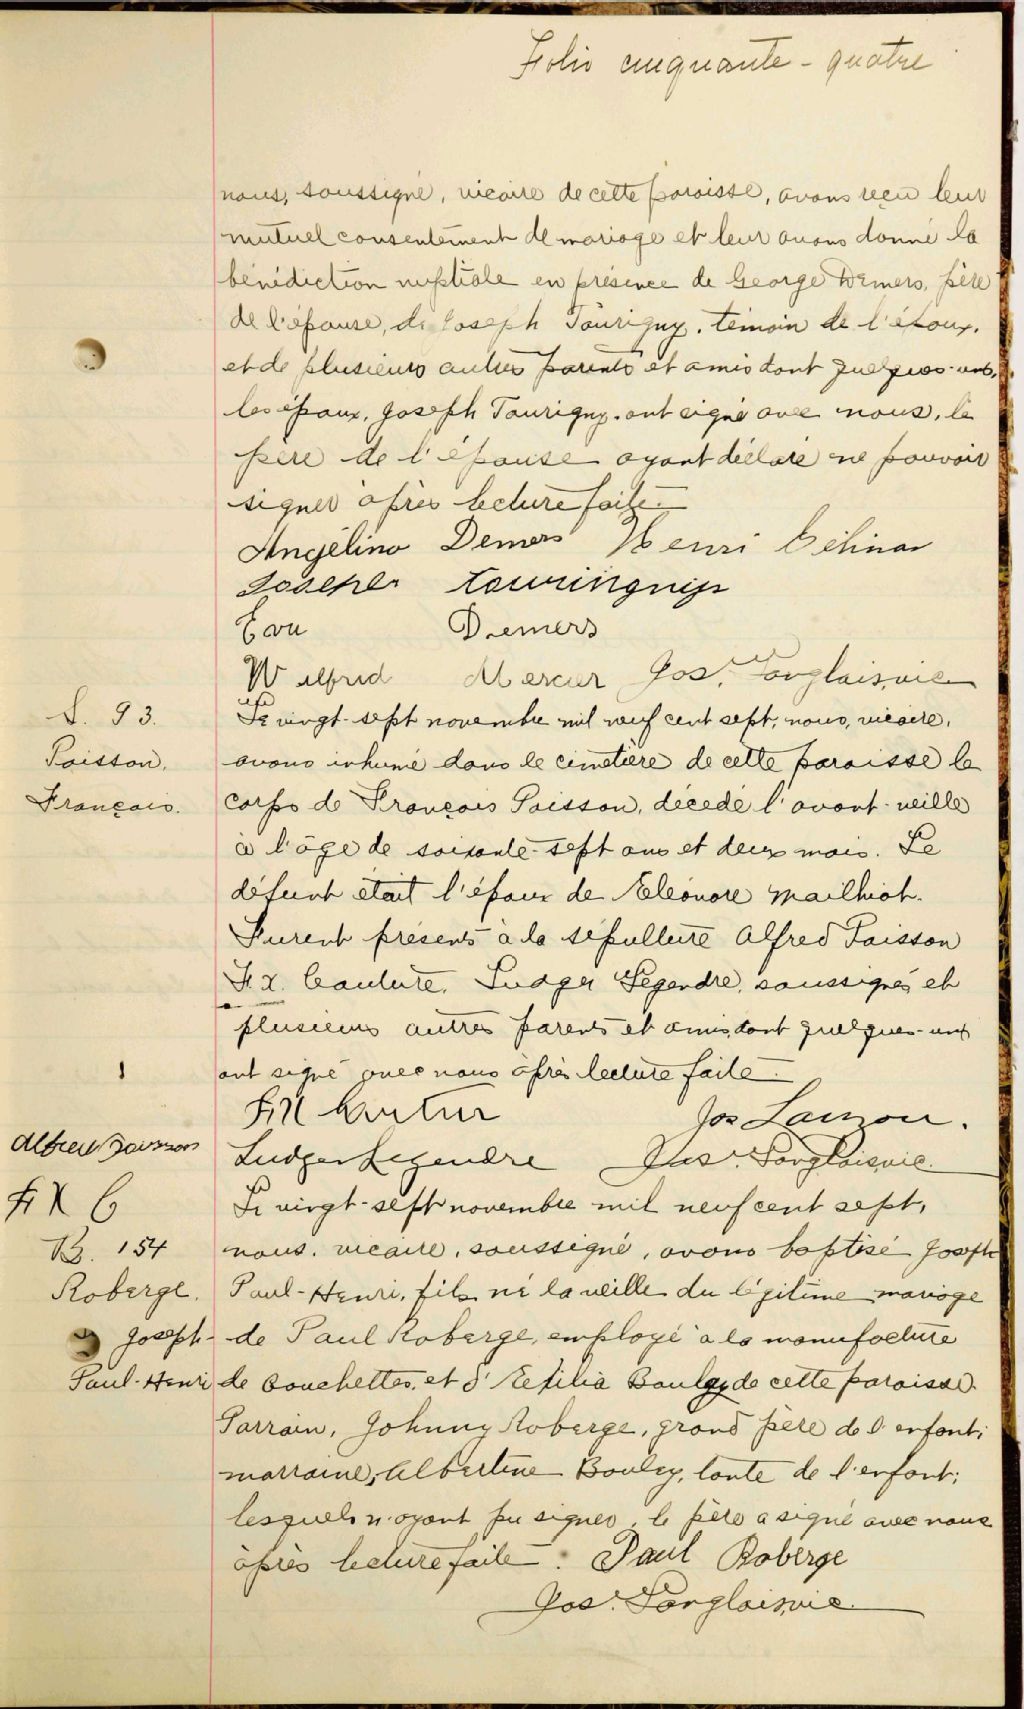 Folio cinquante-quatre
nous, soussigné, vicaire de cette paroisse, avons reçu leur
mutuel consentement de mariage et leur avons donné la
bénédiction nuptiale en présence de George Demers, père
de l'épouse, de Joseph Tourigny, témoin de l'époux,
et de plusieurs autres parents et amis dont quelques-uns,
les époux, Joseph Tourigny, ont signé avec nous, le
père de l'épouse ayant déclaré ne pouvoir
signer après lecture faite.
Angélina Demers Henri Célinas
Joseph
Eva Demers
Wilfrid Mercier Jos. Langlais, vic
S. 93.
Poisson,
François.
Le vingt-sept novembre mil neuf cent sept, nous, vicaire,
avons inhumé dans le cimetière de cette paroisse le
corps de François Poisson, décédé l'avant-veille
à l'âge de soixante-sept ans et deux mois. Le
défunt était l'époux de Eléonore Mailhiot.
Furent présents à la sépulture Alfred Poisson
F. X. Couture, Ludger Légendre, soussignés et
plusieurs autres parents et amis, dont quelques-uns
ont signé avec nous après lecture faite.
1
F X Jos Lanzon.
Alfred Poisson
Ludger Legendre Jos. Langlais, vic.
F X C
B. 154
Roberge,
Joseph-
Paul-Henri
Le vingt-sept novembre mil neuf cent sept,
nous, vicaire, soussigné, avons baptisé Joseph
Paul-Henri, fils né la veille du légitime mariage
de Paul Roberge, employé à la manufacture
de couchettes, et d' Boulay de cette paroisse.
Parrain, Johnny Roberge, grand père de l'enfant;
marraine, Albertine Boulay, tante de l'enfant;
lesquels n'ayant pu signer, le père a signé avec nous
après lecture faite. Paul Roberge
Jos. Langlais, vic.